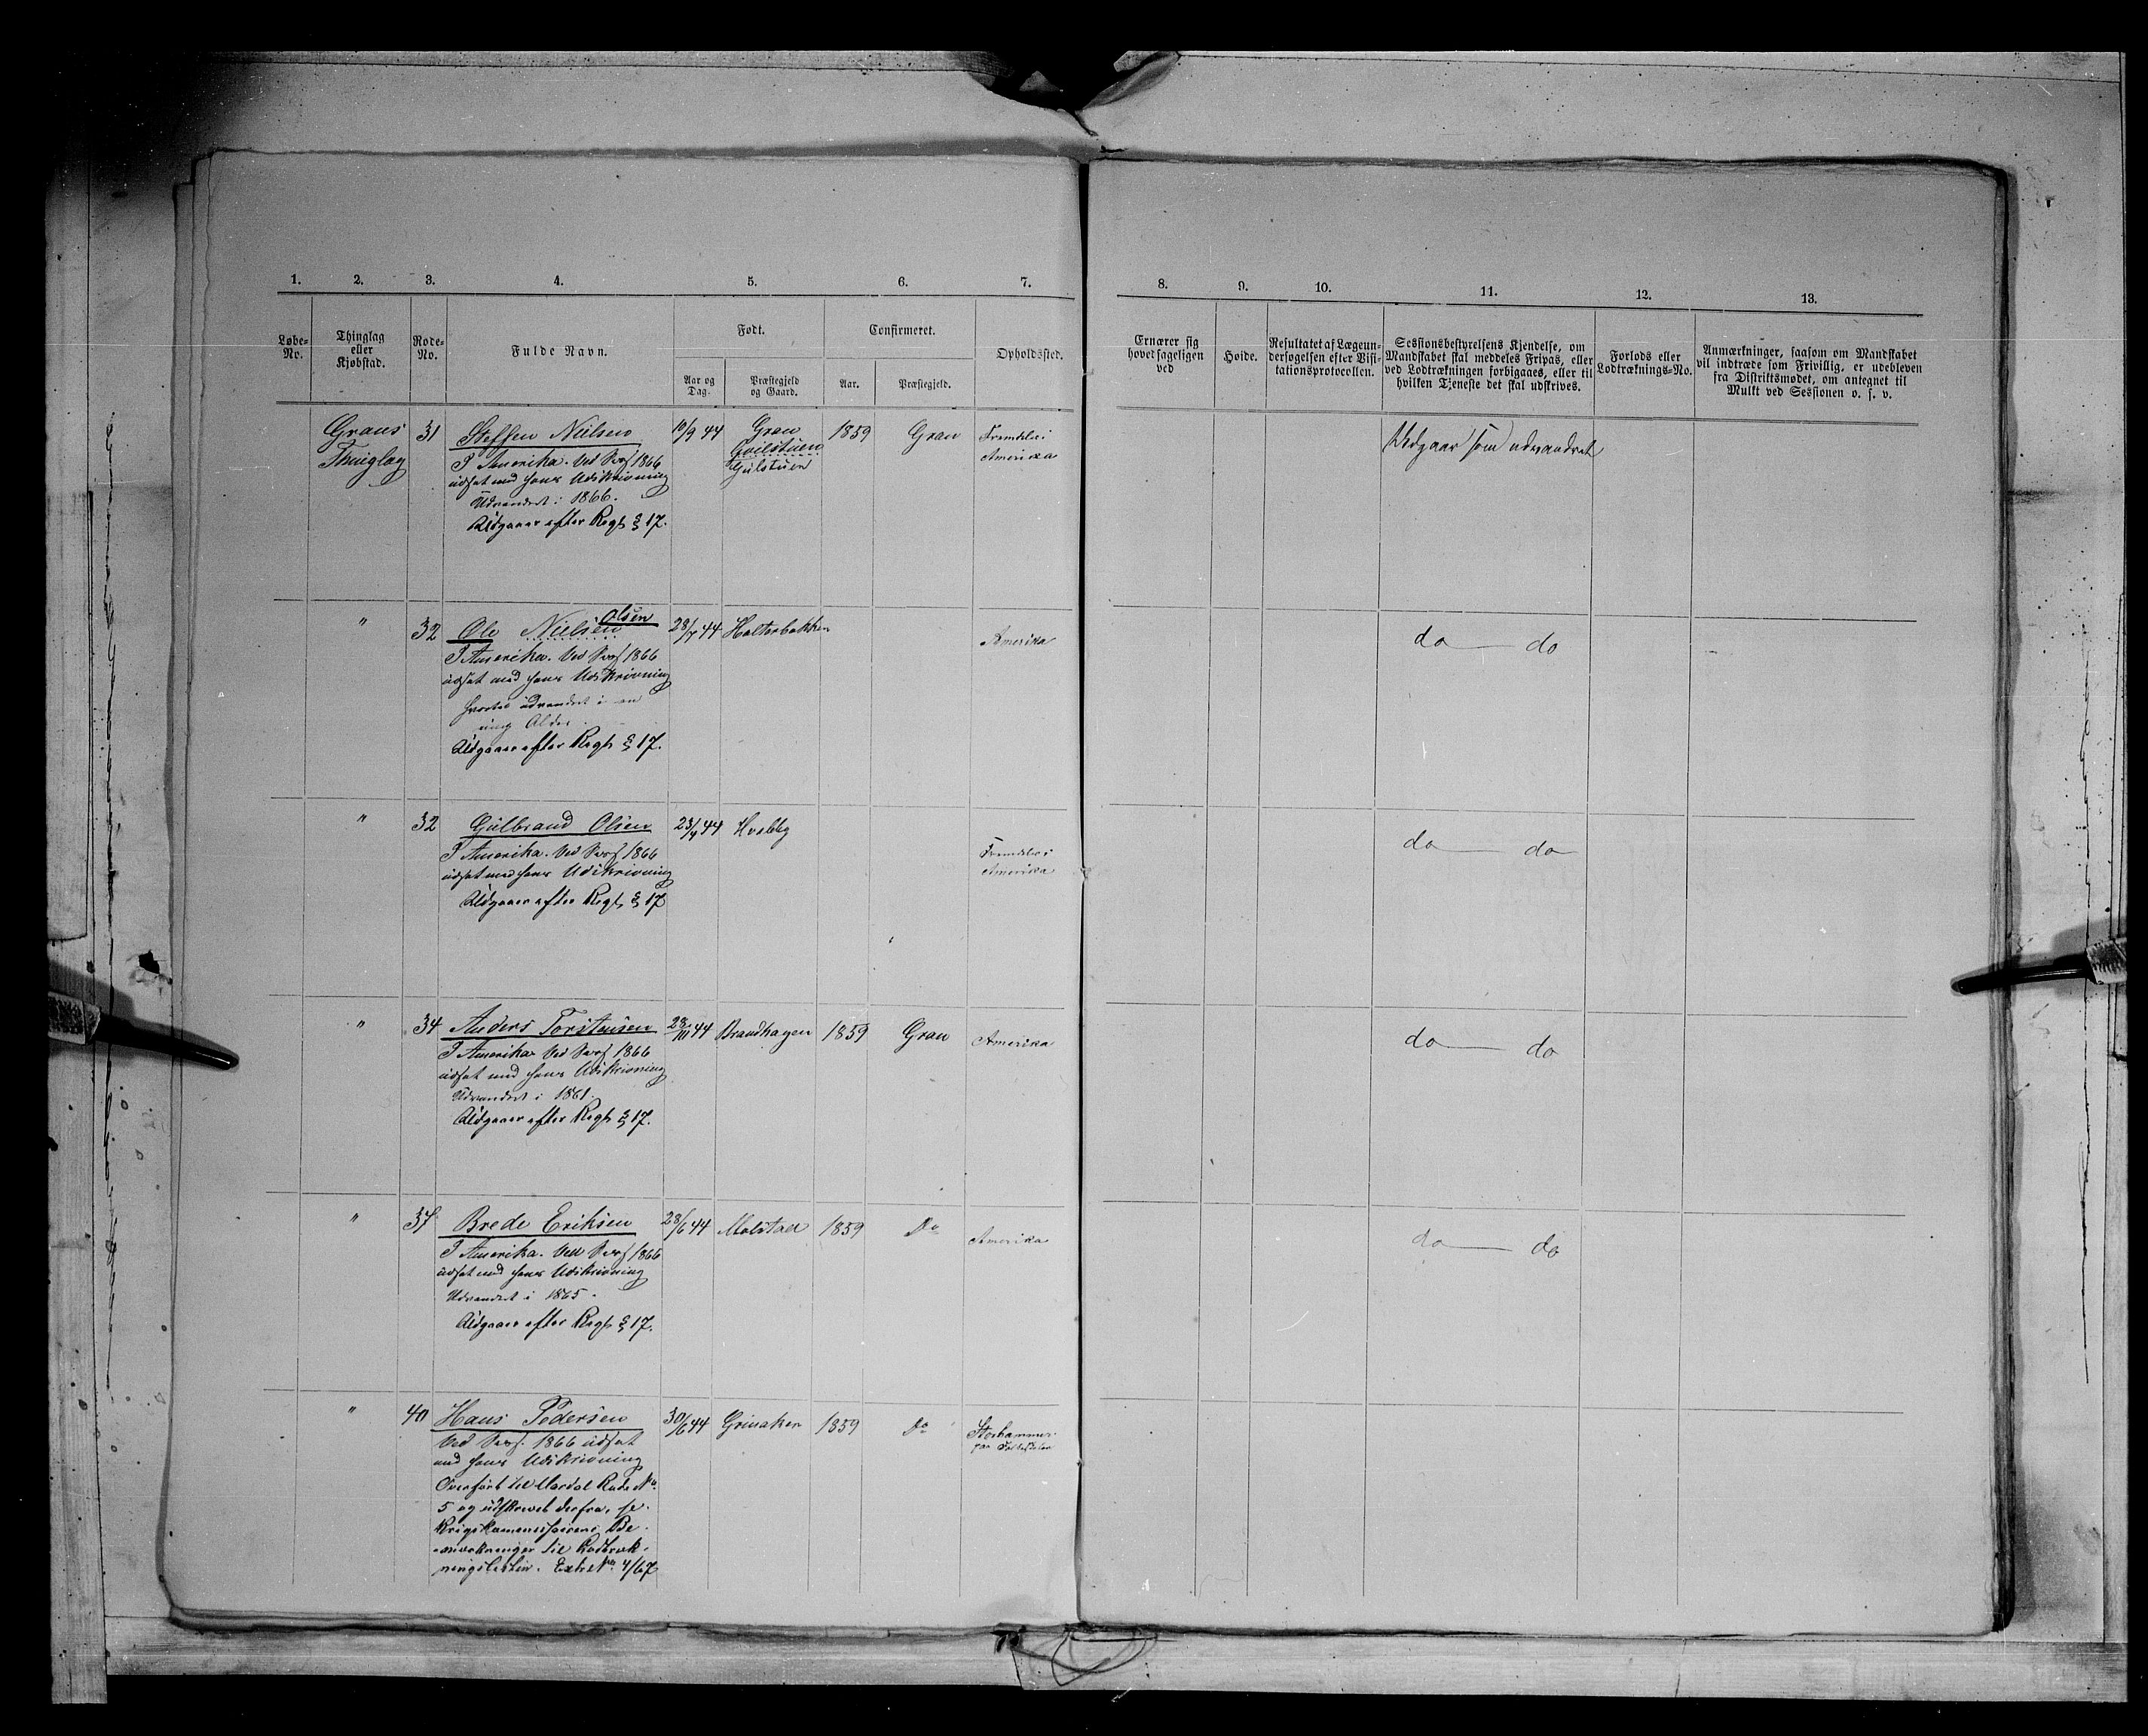 1. 2. 3. 4. 5. 6. 7. 8. 9. 10. 11. 12. 13.
Løbe-No.
Thinglag eller Kjøbstad.
Rode-No.
Fulde Navn.
Født.
Aar og Dag.
Præstegjeld og Gaard.
Confirmeret.
Aar.
Præstegjeld.
Opholdssted.
Ernærer sig hovedsageligen ved
Høide.
Resultatet af Lægeundersøgelsen efter Visitationsprotocollen.
Sessionsbestyrelsens Kjendelse, om Mandskabet skal meddeles Fripas, eller ved Lodtrækningen forbigaaes, eller til hvilken Tjeneste det skal udskrives.
Forlods eller Lodtræknings-No.
Anmærkninger, saasom om Mandskabet vil indtræde som Frivillig, er udebleven fra Distriktsmødet, om antegnet til Mulkt ved Sessionen o. s. v.
Grans Thinglag 31 Steffen Nielsen 10/9 44 Gran 1859 Gran Fremdeles i Amerika Udgaar som udvandret
Gulstuen
I Amerika. Ved Sess 1866
udsat med hans Udskrivning
Udvandret i 1866.
Udgaar efter Regl. § 17.
" 32 Ole Nielsen Olsen 28/7 44 Halterbakken Amerika do do
I Amerika. Ved Sess 1866
udsat med hans Udskrivning
udvandret i en
ung Alder
Udgaar efter Regl. § 17.
" 32 Gulbrand Olsen 23/4 44 Hvaleby Fremdeles i Amerika do do
I Amerika. Ved Sess 1866
udsat med hans Udskrivning
Udgaar efter Regl. § 17
" 34 Anders Torstensen 28/10 44 Brandhagen 1859 Gran Amerika do do
I Amerika Ved Sess 1866
udsat med hans Udskrivning
Udvandret i 1861.
Udgaar efter Regl. § 17.
" 37 Brede Eriksen 28/6 44 Molstad 1859 Do Amerika do do
I Amerika. Ved Sess 1866
udsat med hans Udskrivning
Udvandret i 1865.
Udgaar efter Regl. § 17.
" 40 Hans Pedersen 30/6 44 Grinaker 1859 Do Storhammer
Ved Sess. 1866 udsat
med hans Udskrivning
Overført til Vardal Rode No.
5 og udskrevet derfra, se
Krigskommissairens Be-
mærkninger til Lodtræk-
ningslisten. Extr No. 4/67